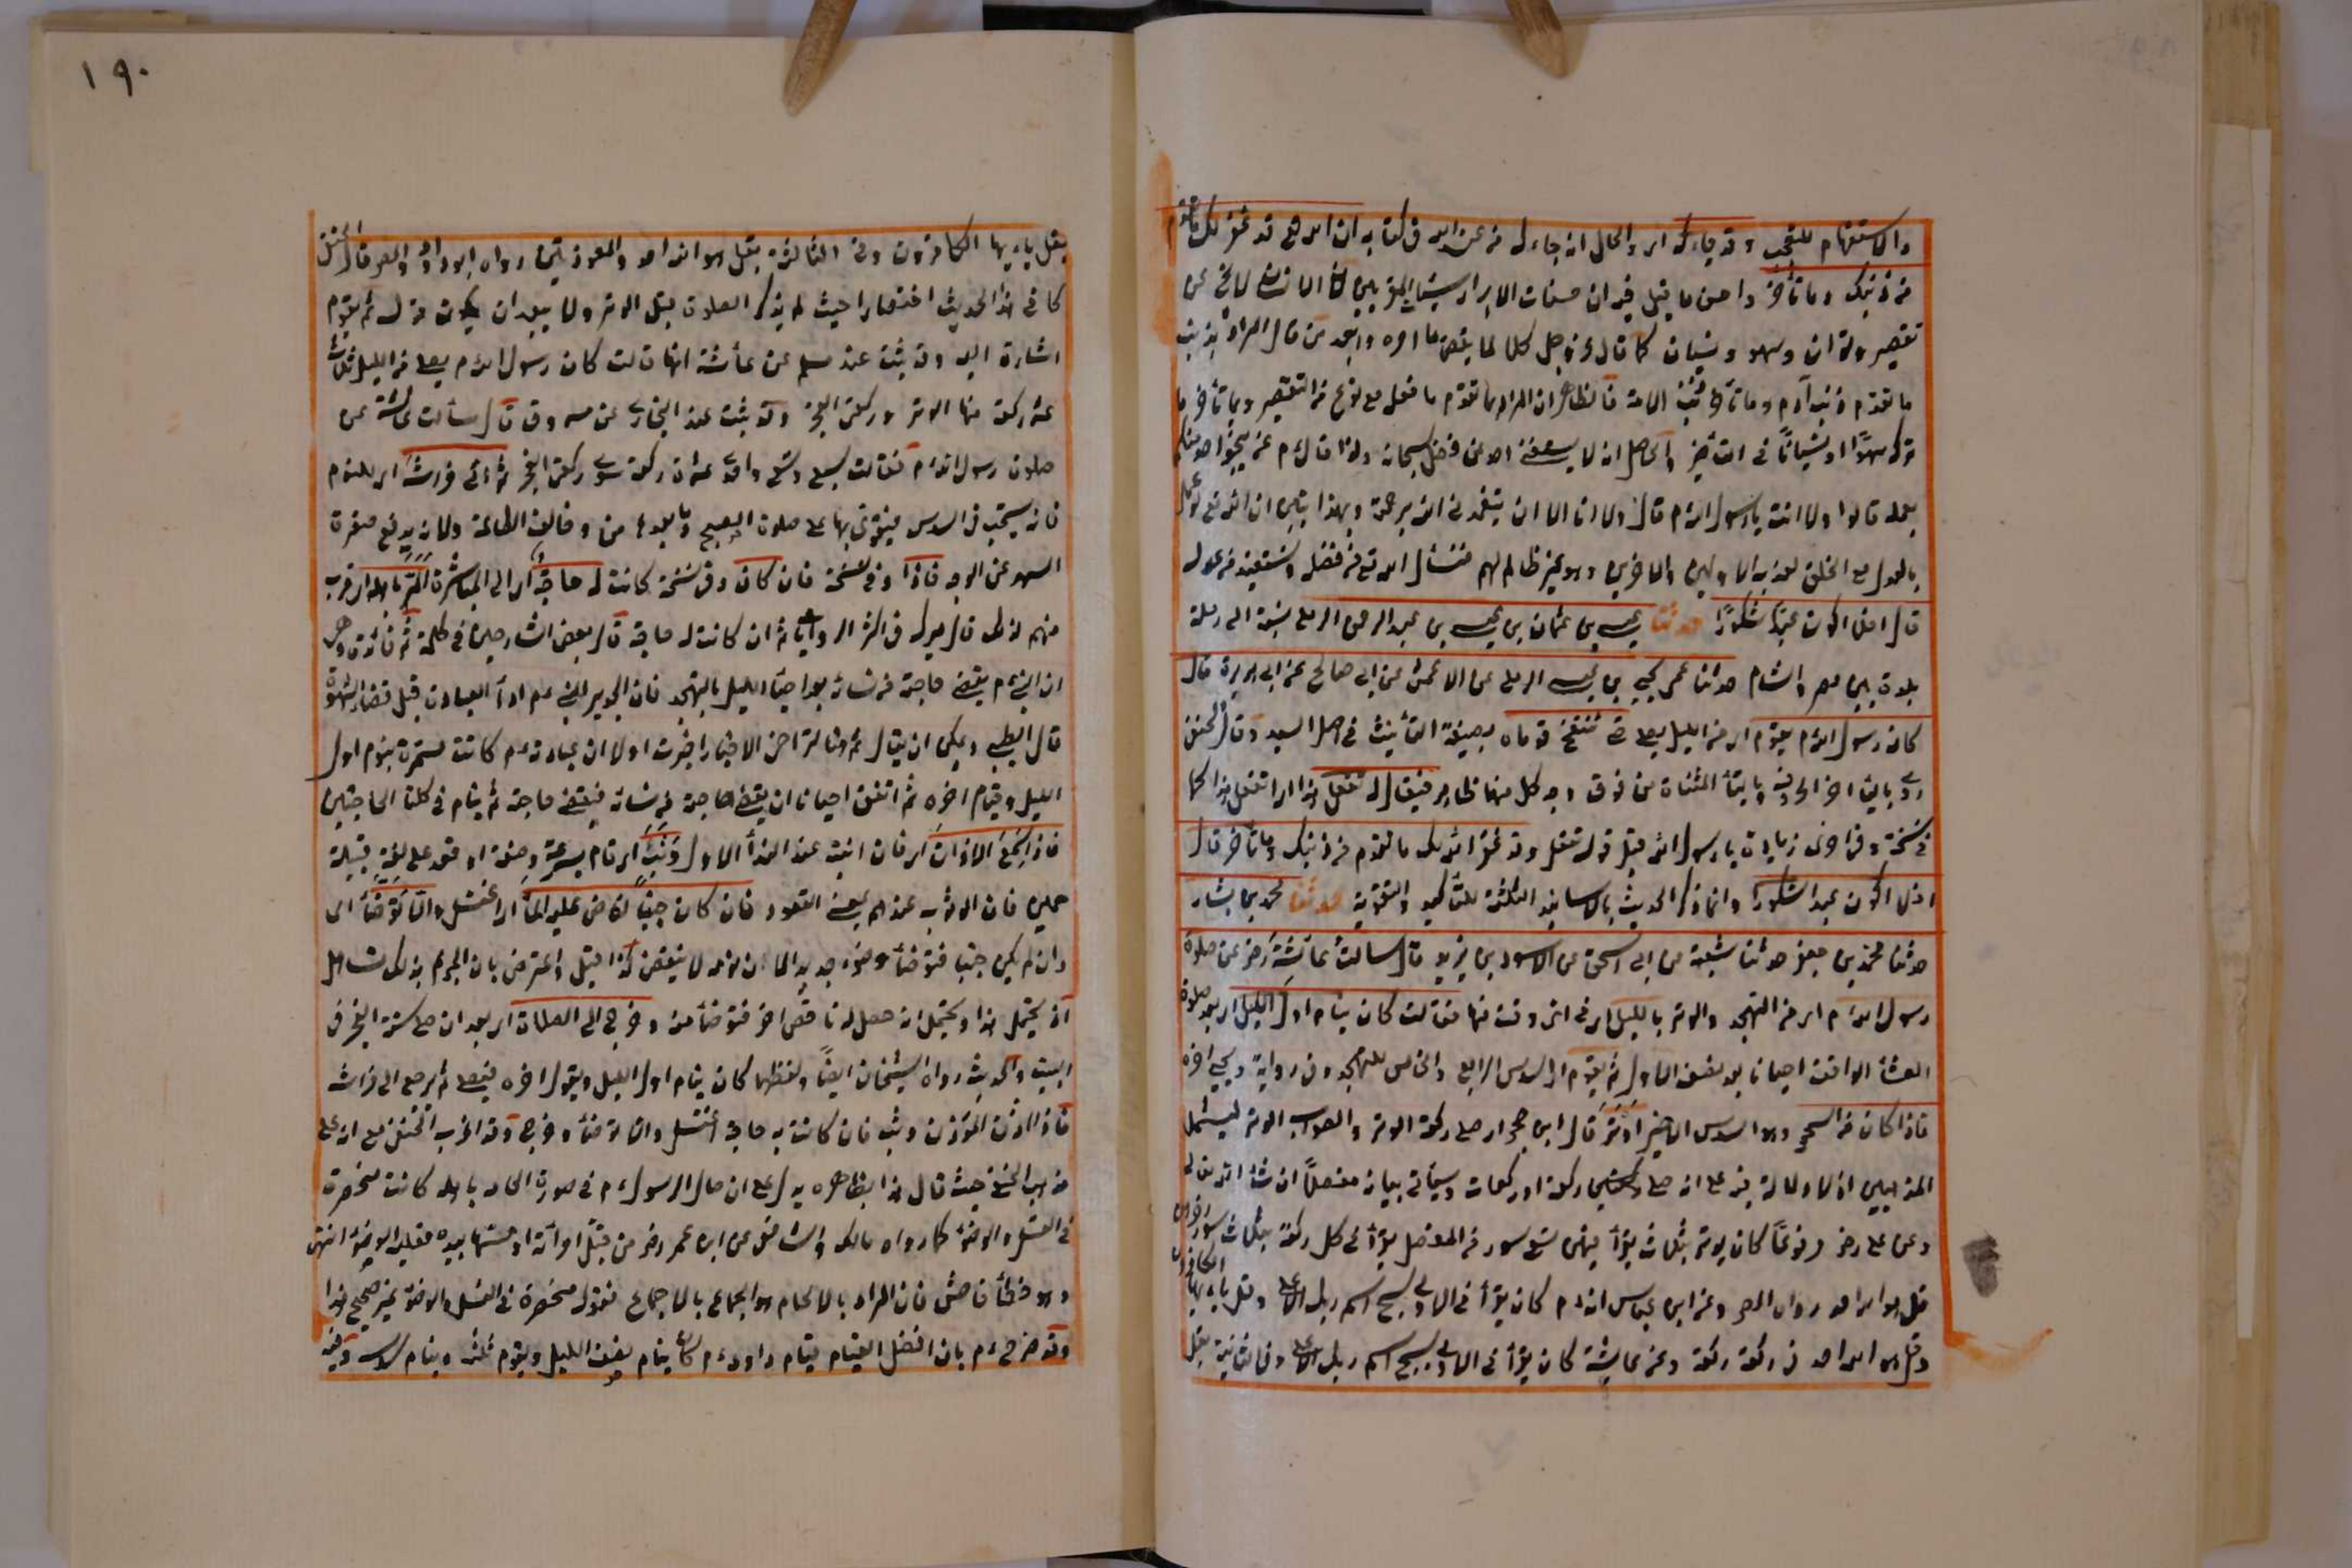 والاستفهام للتعجب وقد جاءك اى والحال انه جاءك من عند الله فى كتابه ان الله تع قد غفر لك ما تقدم
من ذنبك وما تأخر واحسن ما قيل فيه ان حسنات الابرار سيئات المقربين لان الانسان لا يخ عن
تقصير وتوان وسهو ونسيان كما قال عز وجل كلا لما يقض ما امره وابعد من قال المراد بذنب
ما تقدم ذنب آدم وما تأخر ذنب الامة فالظاهر ان المراد بما تقدم ما فعل مع نوع من التقصير وبما تأخر ما
تركه سهوا او نسيانا فى التأخير والحاصل انه لا يستغنى احد عن فضله سبحانه ولذا قال ءم لن ينجو احد منكم
بعمله قالوا ولا انت يا رسول الله قال ولا انا الا ان يتغمدنى الله برحمته وبهذا يتبين ان الله تع لو عمل
بالعدل مع الخلق لعذب الاولين والآخرين وهو غير ظالم لهم فنسأل الله تع من فضله ونستعيذ من عدله
قال افلا اكون عبدا شكورا حدثنا عيسى بن عثمان بن عيسى بن عبد الرحمن الرملى نسبة الى رملة
بلدة بين مصر والشام حدثنا عمى يحيى بن عيسى الرملى عن الاعمش عن ابى صالح عن ابى هريرة قال
كان رسول الله ءم يقوم اى من الليل يصلى حتى تنتفخ قدماه بصيغة التأنيث فى اصل السيد وقال الحنفى
روى بالياء آخر الحروف وبالتاء المثناة من فوق وجه كل منهما ظاهر فيقال له تفعل هذا اى اتفعل هذا كما
فى نسخة وفى اخرى زيادة يا رسول الله قبل قوله تفعل وقد غفر الله لك ما تقدم من ذنبك وما تأخر قال
افلا اكون عبدا شكورا وانما ذكر الحديث بالاسانيد الثلثة للتأكيد والتقوية حدثنا محمد بن بشار
حدثنا محمد بن جعفر حدثنا شعبة عن ابى اسحق عن الاسود بن يزيد قال سالت عائشة رضى عن صلوة
رسول الله ءم اى من التهجد والوتر بالليل اى فى اى وقت منها فقالت كان ينام اول الليل اى بعد صلوة
العشاء الواقعة احيانا بعد نصف الاول ثم يقوم اى السدس الرابع والخامس للتهجد وفى رواية ويحيى اخره
فاذا كان من السحر وهو السدس الاخير اوتر قال ابن حجر اى صلى ركعة الوتر والصواب الوتر ليشمل
المذهبين اذ لا دلالة فيه على انه صلى ركعة او ركعات وسيأتى بيانه مفصلا ان شاء الله تعالى
وعن على رضى مرفوعا كان يوتر بثلاث يقرأ فيهن بتسع سور من المفصل يقرأ فى كل ركعة بثلاث سور اخرهن
قل هو الله احد رواه المص وعن ابن عباس انه ءم كان يقرأ فى الاولى بسبح اسم ربك الاعلى وقل يا ايها الكافرون
وقل هو الله احد فى ركعة ركعة وعن عايشة كان يقرأ فى الاولى بسبح اسم ربك الاعلى وفى الثانية بقل
١٩٠
بقل يا ايها الكافرون وفى الثالثة بقل هو الله احد والمعوذتين رواه ابو داود والمص وقال الحنفى
كان فى هذا الحديث اختصارا حيث لم يذكر الصلوة قبل الوتر ولا يبعد ان يكون قوله ثم يقوم
اشارة اليه وقد ثبت عند مسلم عن عائشة انها قالت كان رسول الله ءم يصلى من الليل ثلاث
عشرة ركعة منها الوتر وركعتى الفجر وقد ثبت عند البخارى عن مسروق قال سألت عائشة عن
صلوة رسول الله ءم فقالت سبع وتسع واحدى عشرة ركعة سوى ركعتى الفجر ثم اتى فراشه اى للنوم
فانه يستحب فى السدس ليقوى بها على صلوة الصبح وما بعدها من وظائف الطاعة ولانه يدفع صفرة
السهر عن الوجه فاذا وفى نسخة فان كان وفى نسخة كانت له حاجة اى الى المباشرة الم باهله اى قرب
منهم لذلك قال ميرك فى اكثر الروايات ان كانت له حاجة قال بعض الشارحين فى كلمة ثم فائدة وهى
ان النبى ءم يقضى حاجته من نسائه بعد احياء الليل بالتهجد فان الجدير بالنبى ءم اداء العبادة قبل قضاء الشهوة
قال الطيبى ويمكن ان يقال ثم هنا لتراخى الاخبار اخبرت اولا ان عبادته ءم كانت مستمرة بنوم اول
الليل وقيام اخره ثم اتفق احيانا ان يقضى حاجته من نسائه فيقضى حاجته ثم ينام فى كلتا الحاجتين
فاذا سمع الاذان اى فان انتبه عند النداء الاول وثب اى قام بسرعة وخفة او قعد على لغة قبيلة
حمير فان الوثب عندهم بمعنى القعود فان كان جنبا افاض عليه الماء اى اغتسل والا توضأ اى
وان لم يكن جنبا فتوضأ وضوء جديدا لان نومه لا ينقض كذا قيل واعترض بان الجزم بذلك تساهل
اذ يحتمل هذا ويحتمل انه حصل له ناقض اخر فتوضأ منه وخرج الى الصلاة اى بعد ان صلى سنة الفجر فى
البيت والحديث رواه الشيخان ايضا ولفظهما كان ينام اول الليل ويقوم اخره فيصلى ثم يرجع الى فراشه
فاذا اذن المؤذن وثب فان كانت به حاجة اغتسل والا توضأ وخرج وقد اغرب الحنفى مع انه على
مذهب الحنفى حيث قال هذا بظاهره يدل على ان حال الرسول ءم فى صورة المام باهله كانت منحصرة
فى الغسل والوضوء كما رواه مالك والشافعى عن ابن عمر رضى من قبل امرأته او مسها بيده فعليه الوضوء انتهى
وهو خطأ فاحش فان المراد بالالمام هو الجماع بالاجماع فقوله منحصرة فى الغسل والوضوء غير صحيح هذا
وقد صرح ءم بان افضل القيام قيام داود ءم كان ينام نصف الليل ويقوم ثلثه وينام سدسه وفيه